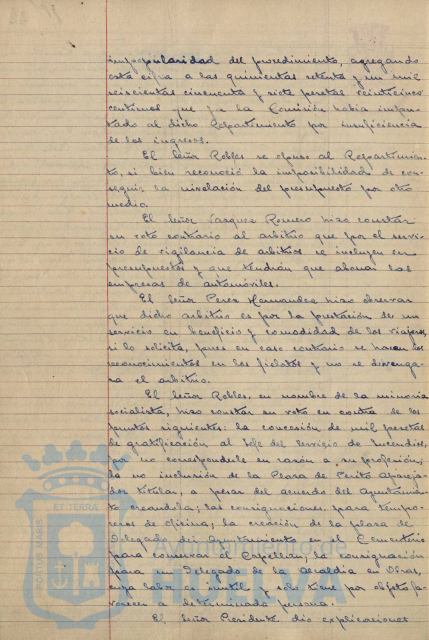 impopularidad del procedimiento, agregando
esta cifra a las quinientas setenta y un mil
seiscientas cincuenta y siete pesetas veinticinco
centimos que ya la Comisión habia impu-
tado al dicho Repartimiento por insuficiencia
de los ingresos.
El Señor Robles se opuso al Repartimien-
to, si bien reconoció la imposibilidad de con-
seguir la nivelación del presupuesto por otro
medio.
El Señor Vazquez Romero hizo constar
su voto contrario al arbitrio que por el servi-
cio de vigilancia de arbitrios se incluyen en
presupuestos y que tendrán que abonar las
empresas de automóviles.
El Señor Perez Hernandez hizo observar
que dicho arbitrio es por la prestación de un
servicio en beneficio y comodidad de los viajeros,
si lo solicita, pues en caso contrario se hacen los
reconocimientos en los fielatos y no se devenga-
ra el arbitrio.
El Señor Robles, en nombre de la minoria
socialista, hizo constar su voto en contra de los
puntos siguientes: la concesión de mil pesetas
de gratificación al Jefe del Servicio de Incendios,
por no corresponderle en razón a su profesión;
la no inclusión de la Plaza de Perito Apareja-
dor titular, a pesar del acuerdo del Ayuntamien-
to creandola; las consignaciones para tempo-
reros de oficina; la creación de la plaza de
Delegado del Ayuntamiento en el Cementerio
para conservar al Capellan; la consignación
para un Delegado de la Alcaldia en Obras,
cuya labor es inutil y sólo tiene por objeto fa-
vorecer a determinada persona.
El Señor Presidente dió explicaciones